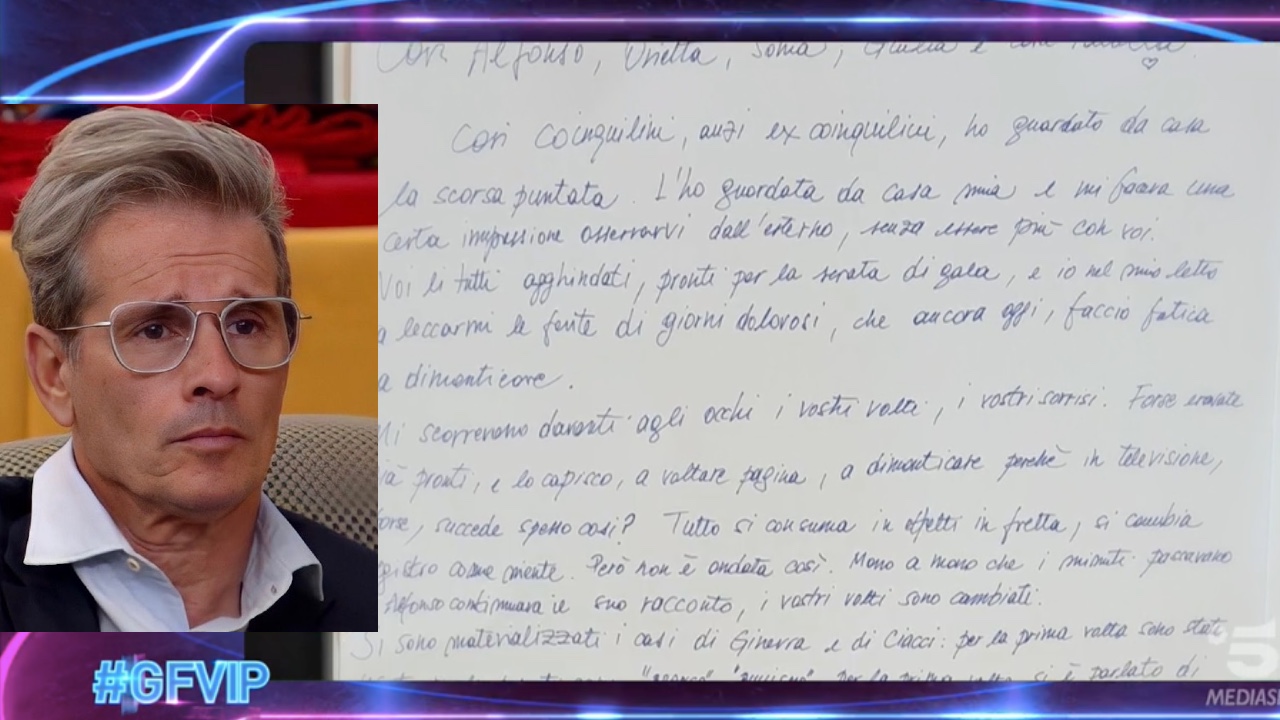 Cari Alfonso, Orietta, Sonia, Giulia e
Cari Coinquilini, anzi ex coinquilini, ho guardato da casa
la scorsa puntata. L'ho guardata da casa mia e mi faceva una
certa impressione osservarvi dall'esterno, senza essere più con voi.
Voi lì tutti agghindati, pronti per la serata di gala, e io nel mio letto
a leccarmi le ferite di giorni dolorosi, che ancora oggi, faccio fatica
a dimenticare.
Mi scorrevano davanti agli occhi i vostri volti, i vostri sorrisi. Forse eravate
ià pronti, e lo capisco, a voltare pagina, a dimenticare perchè in televisione,
orse, succede spesso così? Tutto si consuma in effetti in fretta, si cambia
gistro come niente. Però non è andata così. Mano a mano che i minuti passavano
Alfonso continuava il suo racconto, i vostri volti sono cambiati.
Si sono materializzati i casi di Ginevra e di Ciacci: per la prima volta sono stati
per la prima volta si è parlato di
#GFVIP
5
MEDIASE